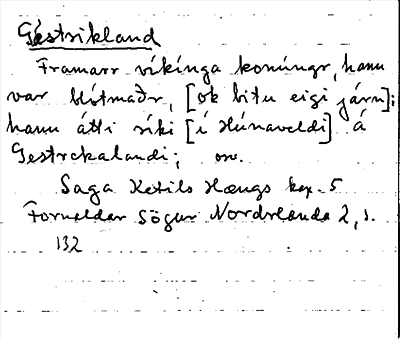 Gestrikland
Framarr víkínga konúngr, hann
var blótmaðr, [ok bitu eigi járn];
hann átti ríki [í Húnaveldi] á
Gestrekalandi;
Saga Ketils Hængs kap. 5
Fornaldar Sögur Nordrlanda 2, s.
132